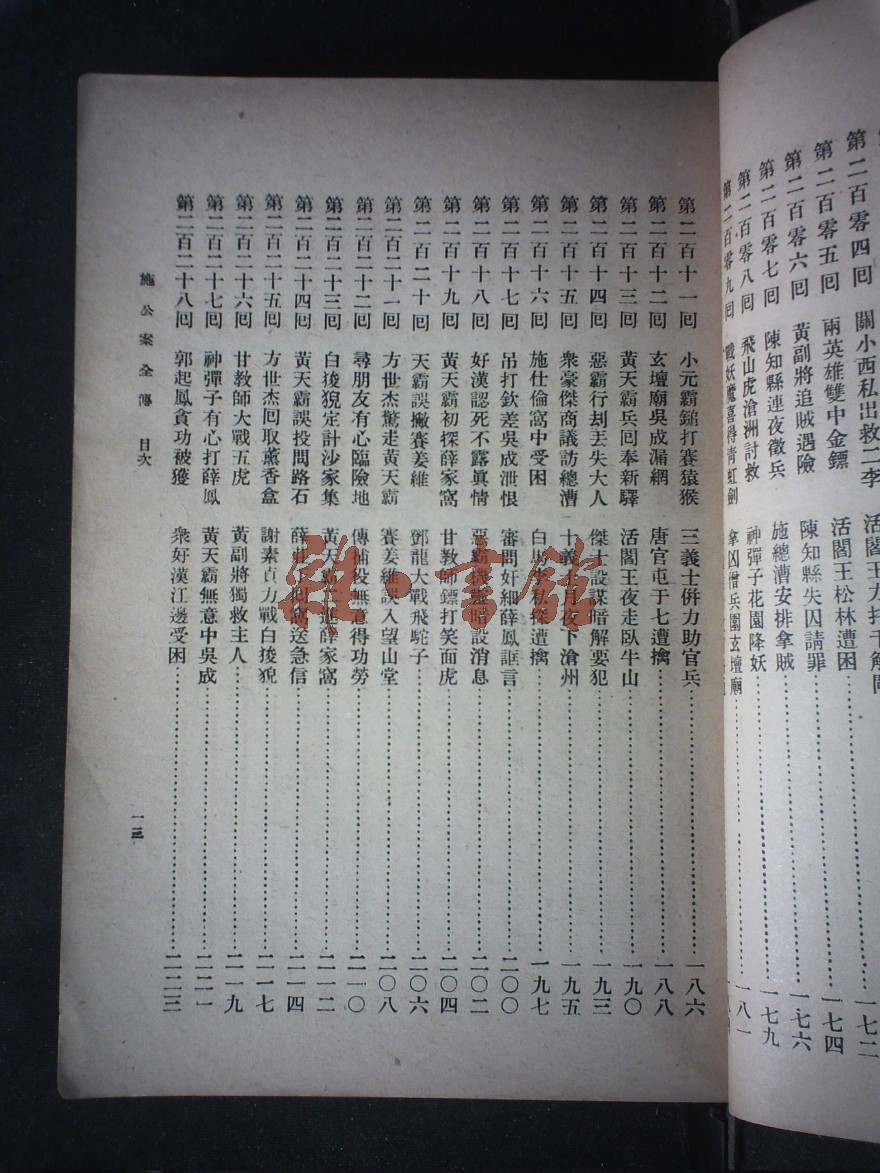 第二百零四囘 關小西私出救二李 活閻王力托千觔閘 一七二
第二百零五囘 兩英雄雙中金鏢 活閻王松林遭困 一七四
第二百零六囘 黃副將追賊遇險 陳知縣失囚請罪 一七六
第二百零七囘 陳知縣連夜徵兵 施總漕安排拿賊 一七九
第二百零八囘 飛山虎滄洲討救 神彈子花園降妖 一八一
第二百零九囘 戰妖魔喜得青虹劍 拿凶僧兵圍玄壇廟
第二百十一囘 小元霸鎚打賽猿猴 三義士併力助官兵 一八六
第二百十二囘 玄壇廟吳成漏網 唐官屯于七遭擒 一八八
第二百十三囘 黃天霸兵囘奉新驛 活閻王夜走臥牛山 一九〇
第二百十四囘 惡霸行刦丟失大人 傑士設謀暗解要犯 一九三
第二百十五囘 衆豪傑商議訪總漕 十義士月夜下滄州 一九五
第二百十六囘 施仕倫窩中受困 白馬李私探遭擒 一九七
第二百十七囘 吊打欽差吳成泄恨 審問奸細薛鳳誆言 二〇〇
第二百十八囘 好漢認死不露眞情 惡霸機靈暗設消息 二〇二
第二百十九囘 黃天霸初探薛家窩 甘教師鏢打笑面虎 二〇四
第二百二十囘 天霸誤撇賽姜維 鄧龍大戰飛駝子 二〇六
第二百二十一囘 方世杰驚走黃天霸 賽姜維誤入望山堂 二〇八
第二百二十二囘 尋朋友有心臨險地 傳捕役無意得功勞 二一〇
第二百二十三囘 白狻猊定計沙家集 黃天霸二進薛家窩 二一二
第二百二十四囘 黃天霸誤投問路石 薛莊丁囘窩送急信 二一四
第二百二十五囘 方世杰囘取薰香盒 謝素貞力戰白狻猊 二一七
第二百二十六囘 甘教師大戰五虎 黃副將獨救主人 二一九
第二百二十七囘 神彈子有心打薛鳳 黃天霸無意中吳成 二二一
第二百二十八囘 郭起鳳貪功被獲 衆好漢江邊受困 二二三
施公案全傳 目次 一三
雜·書館